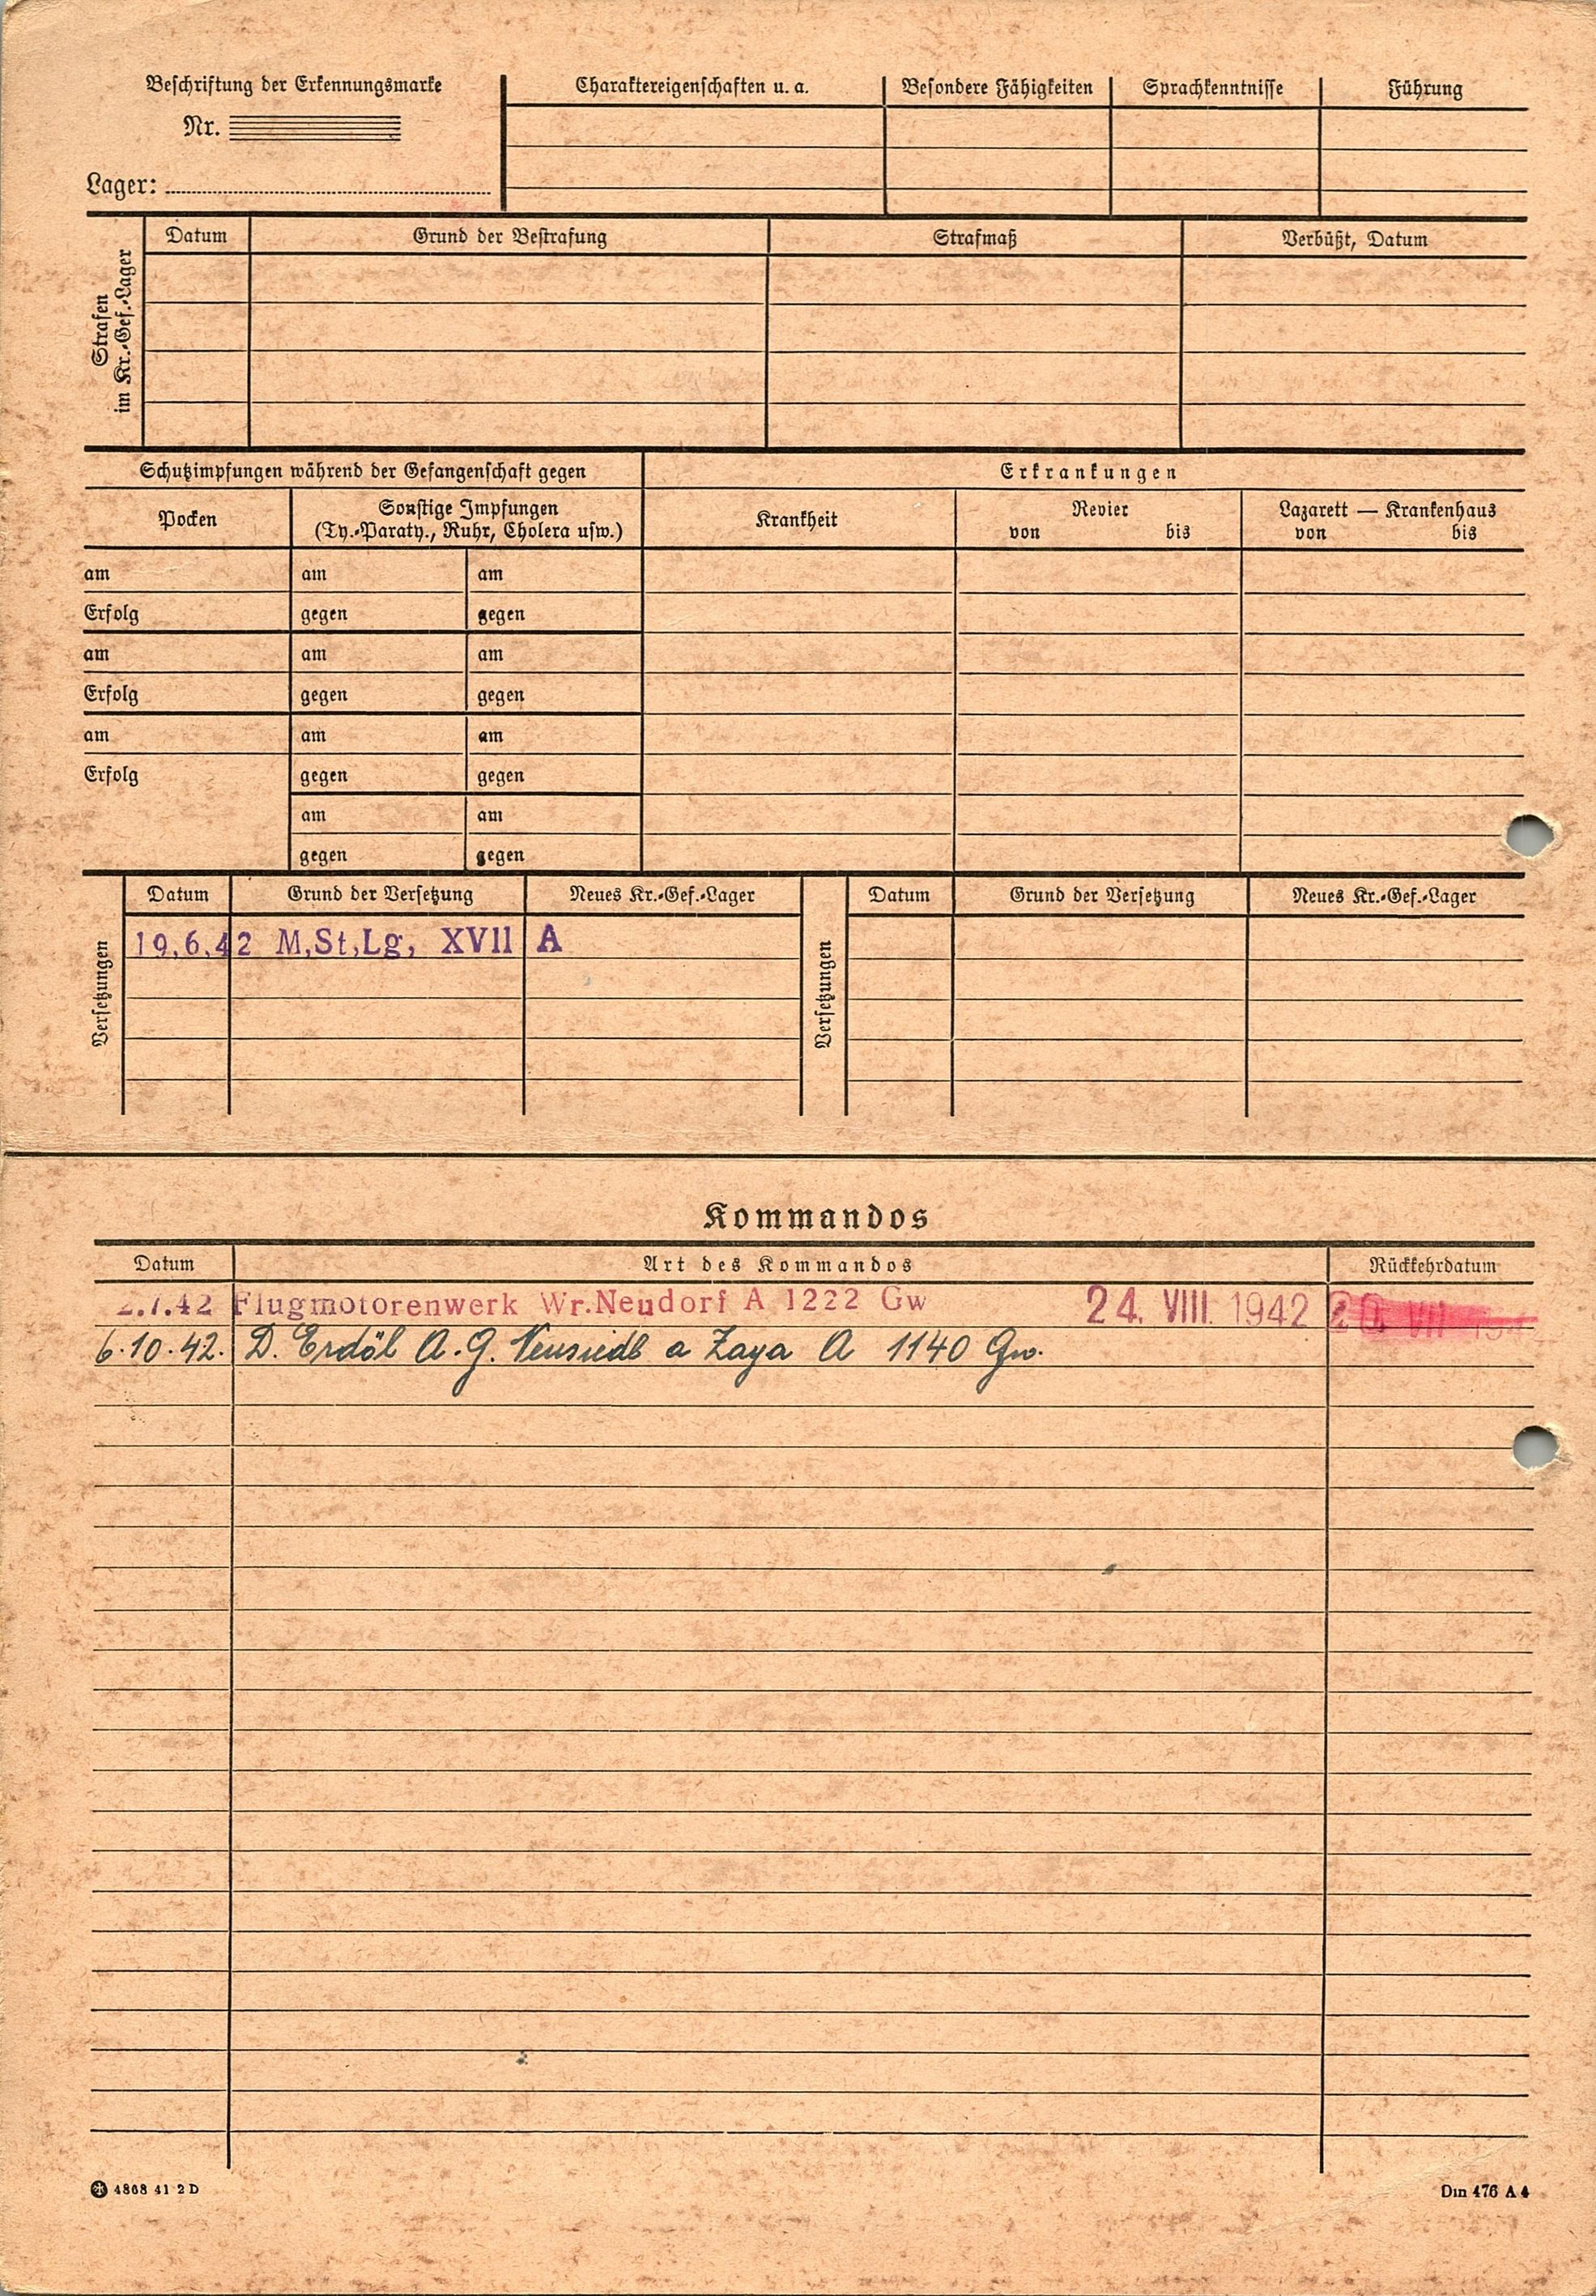 Beschriftung der Erkennungsmarke
Nr.
Lager:
Charaktereigenschaften u. a.
Besondere Fähigkeiten
Sprachkenntnisse
Führung
Strafen
im Kr.-Gef.-Lager
Datum
Grund der Bestrafung
Strafmaß
Verbüßt, Datum
Schutzimpfungen während der Gefangenschaft gegen
Erkrankungen
Pocken
Sonstige Impfungen
(Ty.-Paraty., Ruhr, Cholera usw.)
Krankheit
Revier
von bis
Lazarett — Krankenhaus
von bis
am am am
Erfolg gegen gegen
am am am
Erfolg gegen gegen
am am am
Erfolg gegen gegen
am am
gegen gegen
Versetzungen
Datum Grund der Versetzung Neues Kr.-Gef.-Lager
19.6.42 M,St,Lg, XVII A
Versetzungen
Datum Grund der Versetzung Neues Kr.-Gef.-Lager
Kommandos
Datum Art des Kommandos Rückkehrdatum
2.7.42 Flugmotorenwerk Wr.Neudorf A 1222 Gw 24. VIII. 1942 20. VII
6.10.42. D. Erdöl A.G. Neusiedl a Zaya A 1140 Gw.
4868 41 2 D
Din 476 A 4